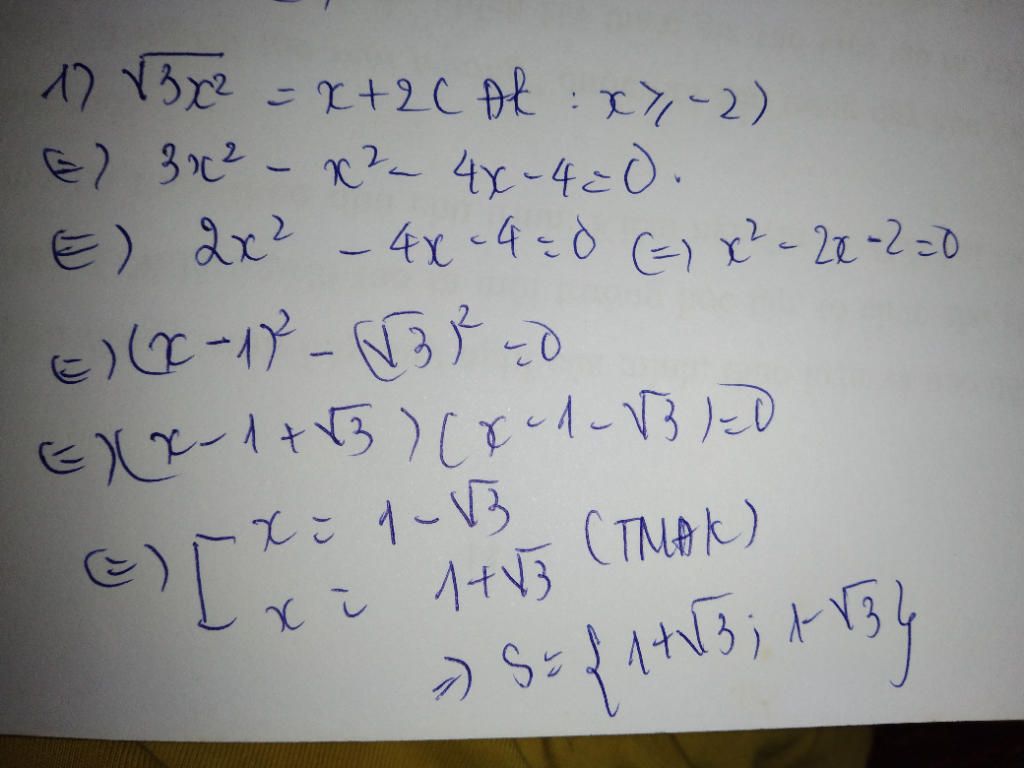 1) √3x² = x+2 ( Đk : x ⩾ -2)
(=) 3x² - x² - 4x - 4 = 0.
(=) 2x² - 4x - 4 = 0 (=) x² - 2x - 2 = 0
(=) (x - 1)² - (√3)² = 0
(=) (x - 1 + √3 ) ( x - 1 - √3 ) = 0
(=) [ x = 1 - √3
x = 1 + √3 (TMĐK)
=> S = { 1 + √3 ; 1 - √3 }